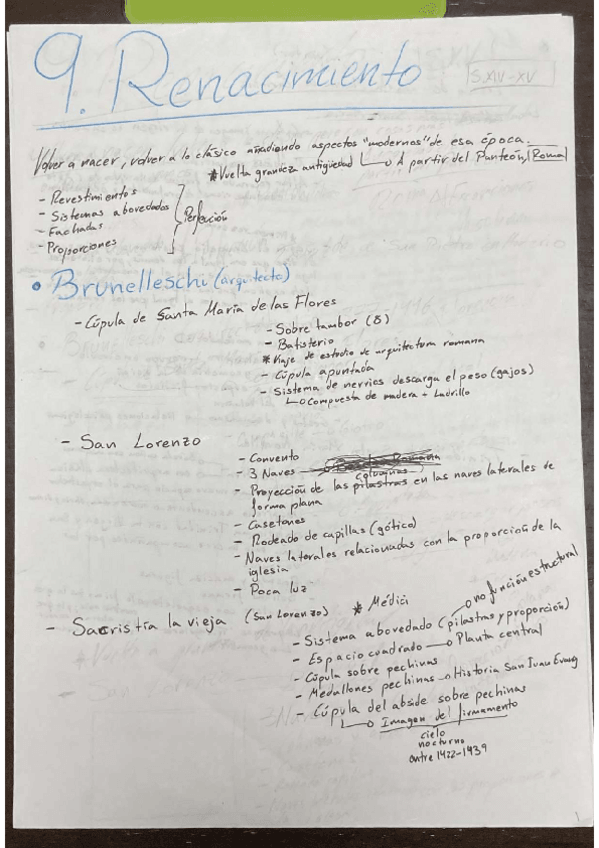 9. Renacimiento
S.XIV-XV
Volver a nacer, volver a lo clásico añadiendo aspectos "modernos" de esa época.
* Vuelta grandeza antigüedad
A partir del Panteón, Roma
- Revestimientos
- Sistemas abovedados
- Fachadas
- Proporciones
Perfección
• Brunelleschi (arquitecto)
- Cúpula de Santa María de las Flores
- Sobre tambor (8)
- Batisterio
* Viaje de estudio de arquitectura romana
- Cúpula apuntada
- Sistema de nervios descarga el peso (gajos)
Compuesta de madera + Ladrillo
- San Lorenzo
- Convento
- 3 Naves
columnas
- Proyección de las pilastras en las naves laterales de
forma plana
- Casetones
- Rodeado de capillas (gótico)
- Naves laterales relacionadas con la proporción de la
iglesia
- Poca luz
- Sacristía la vieja (San Lorenzo) * Médici
no función estructural
- Sistema abovedado (pilastras y proporción)
- Espacio cuadrado Planta central
- Cúpula sobre pechinas
- Medallones pechinas Historia San Juan Evang
- Cúpula del abside sobre pechinas
Imagen del firmamento
cielo
nocturno
entre 1422-1439
1